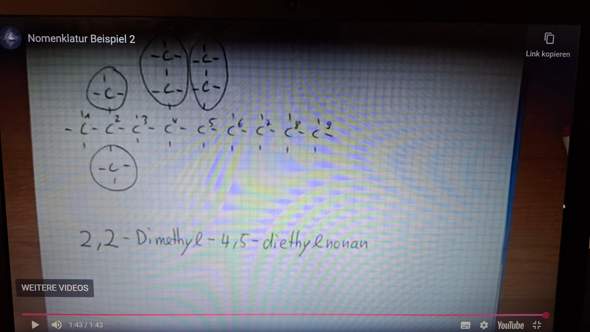 Nomenklatur Beispiel 2
Link kopieren
-C-
-C-
-C-
-C-
-C-
-C-
1 2 3 4 5 6 7 8 9
-C-C-C-C-C-C-C-C-C-
2,2-Dimethyl-4,5-diethylnonan
WEITERE VIDEOS
1:43 / 1:43
YouTube